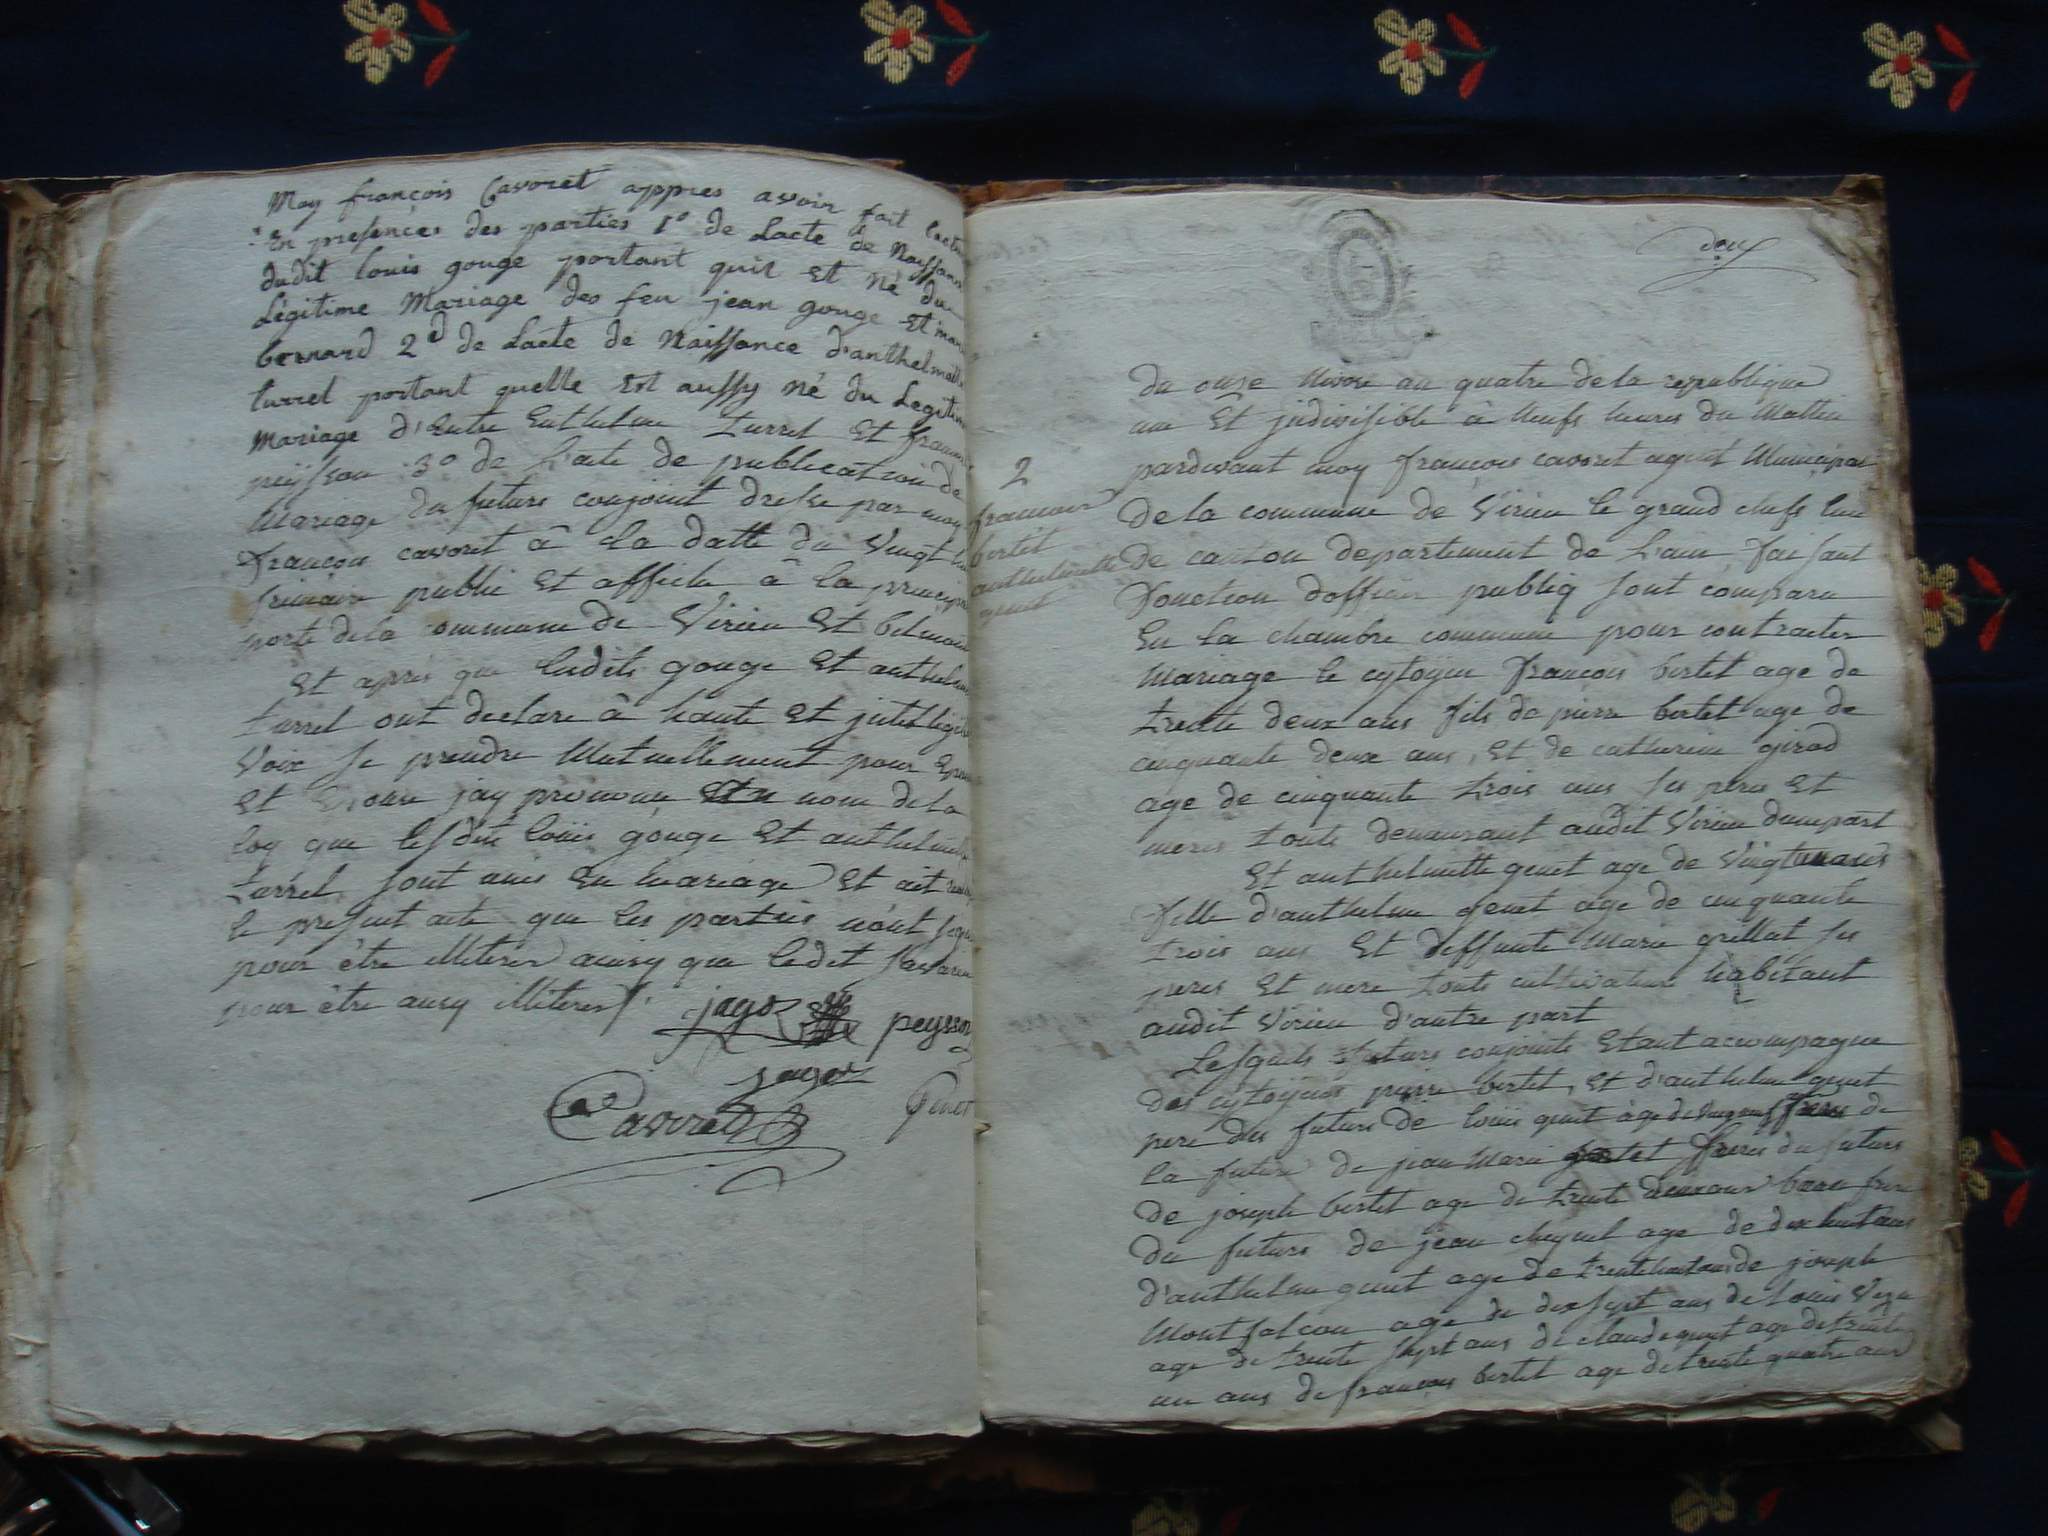 Moy françois Cavoret appres avoir fait lectu
En presences des parties 1º de Lacte de Naissance
dudit louis gouge portant quil et Né du
Legitime Mariage des feu jean gouge et mar
bernard 2d de Lacte de Naissance d'anthelmette
turrel portant quelle Est aussy Né du Legitim
Mariage d'Entre Enthelme turrel Et francoi
peysson 3º de Lacte de publication de
Mariage du future conjoint dresse par moy
francois cavoret â La datte du Vingt
frimaire public Et affiche â La principa
porte de la commune de Virieu Et belmont
Et apres que lesdits gouge Et anthelm
turrel ont declare â haute Et jntelligib
Voix Se prendre Mutuellement pour Epoux
Et Epouse jay prononce au nom de la
loy que lesdits loüis gouge Et anthelmette
turrel Sont unis En Mariage Et ait
le present acte que les parties n'ont signe
pour être illiteres ainsy que ledit
pour être ausy illiteres
jayos peysson
jayos
Cavoret Genet
deux
2
francois
bertet
anthelmette
genet
du onse Nivose an quatre de la republique
une Et jndivisible â Neufs heures du Mattin
pardevant moy francois cavoret agent Municipal
de la commune de Virieu le grand chefs lieu
de canton departement de Lain faisant
fonction dofficier publiq Sont comparu
En La chambre commune pour contracter
Mariage le cytoyen francois bertet age de
trente deux ans fils de pierre bertet age de
cinquante deux ans, Et de catherine girod
age de cinquante trois ans Ses peres Et
meres touts demeurant audit Virieu dunepart
Et anthelmette genet age de Vingt
fille d'anthelme genet age de cinquante
trois ans Et deffunte Marie grillet Ses
peres Et mere touts cultivateur habitant
audit Virieu d'autre part
Lesquels futurs conjoints Etant accompagne
des cytoyens pierre bertet, Et d'anthelme genet
pere des futurs de loüis genet age de freres de
la future de jean Marie bertet freres du futurs
de joseph bertet age de trente deux ans beau frere
du futurs de jean age de dix huit ans
d'anthelme genet age de trente huit ans de joseph
Montfalcon age de dix sept ans de Louis
age de trente Sept ans de claude genet age de trente
un ans de francois bertet age de trente quatre ans